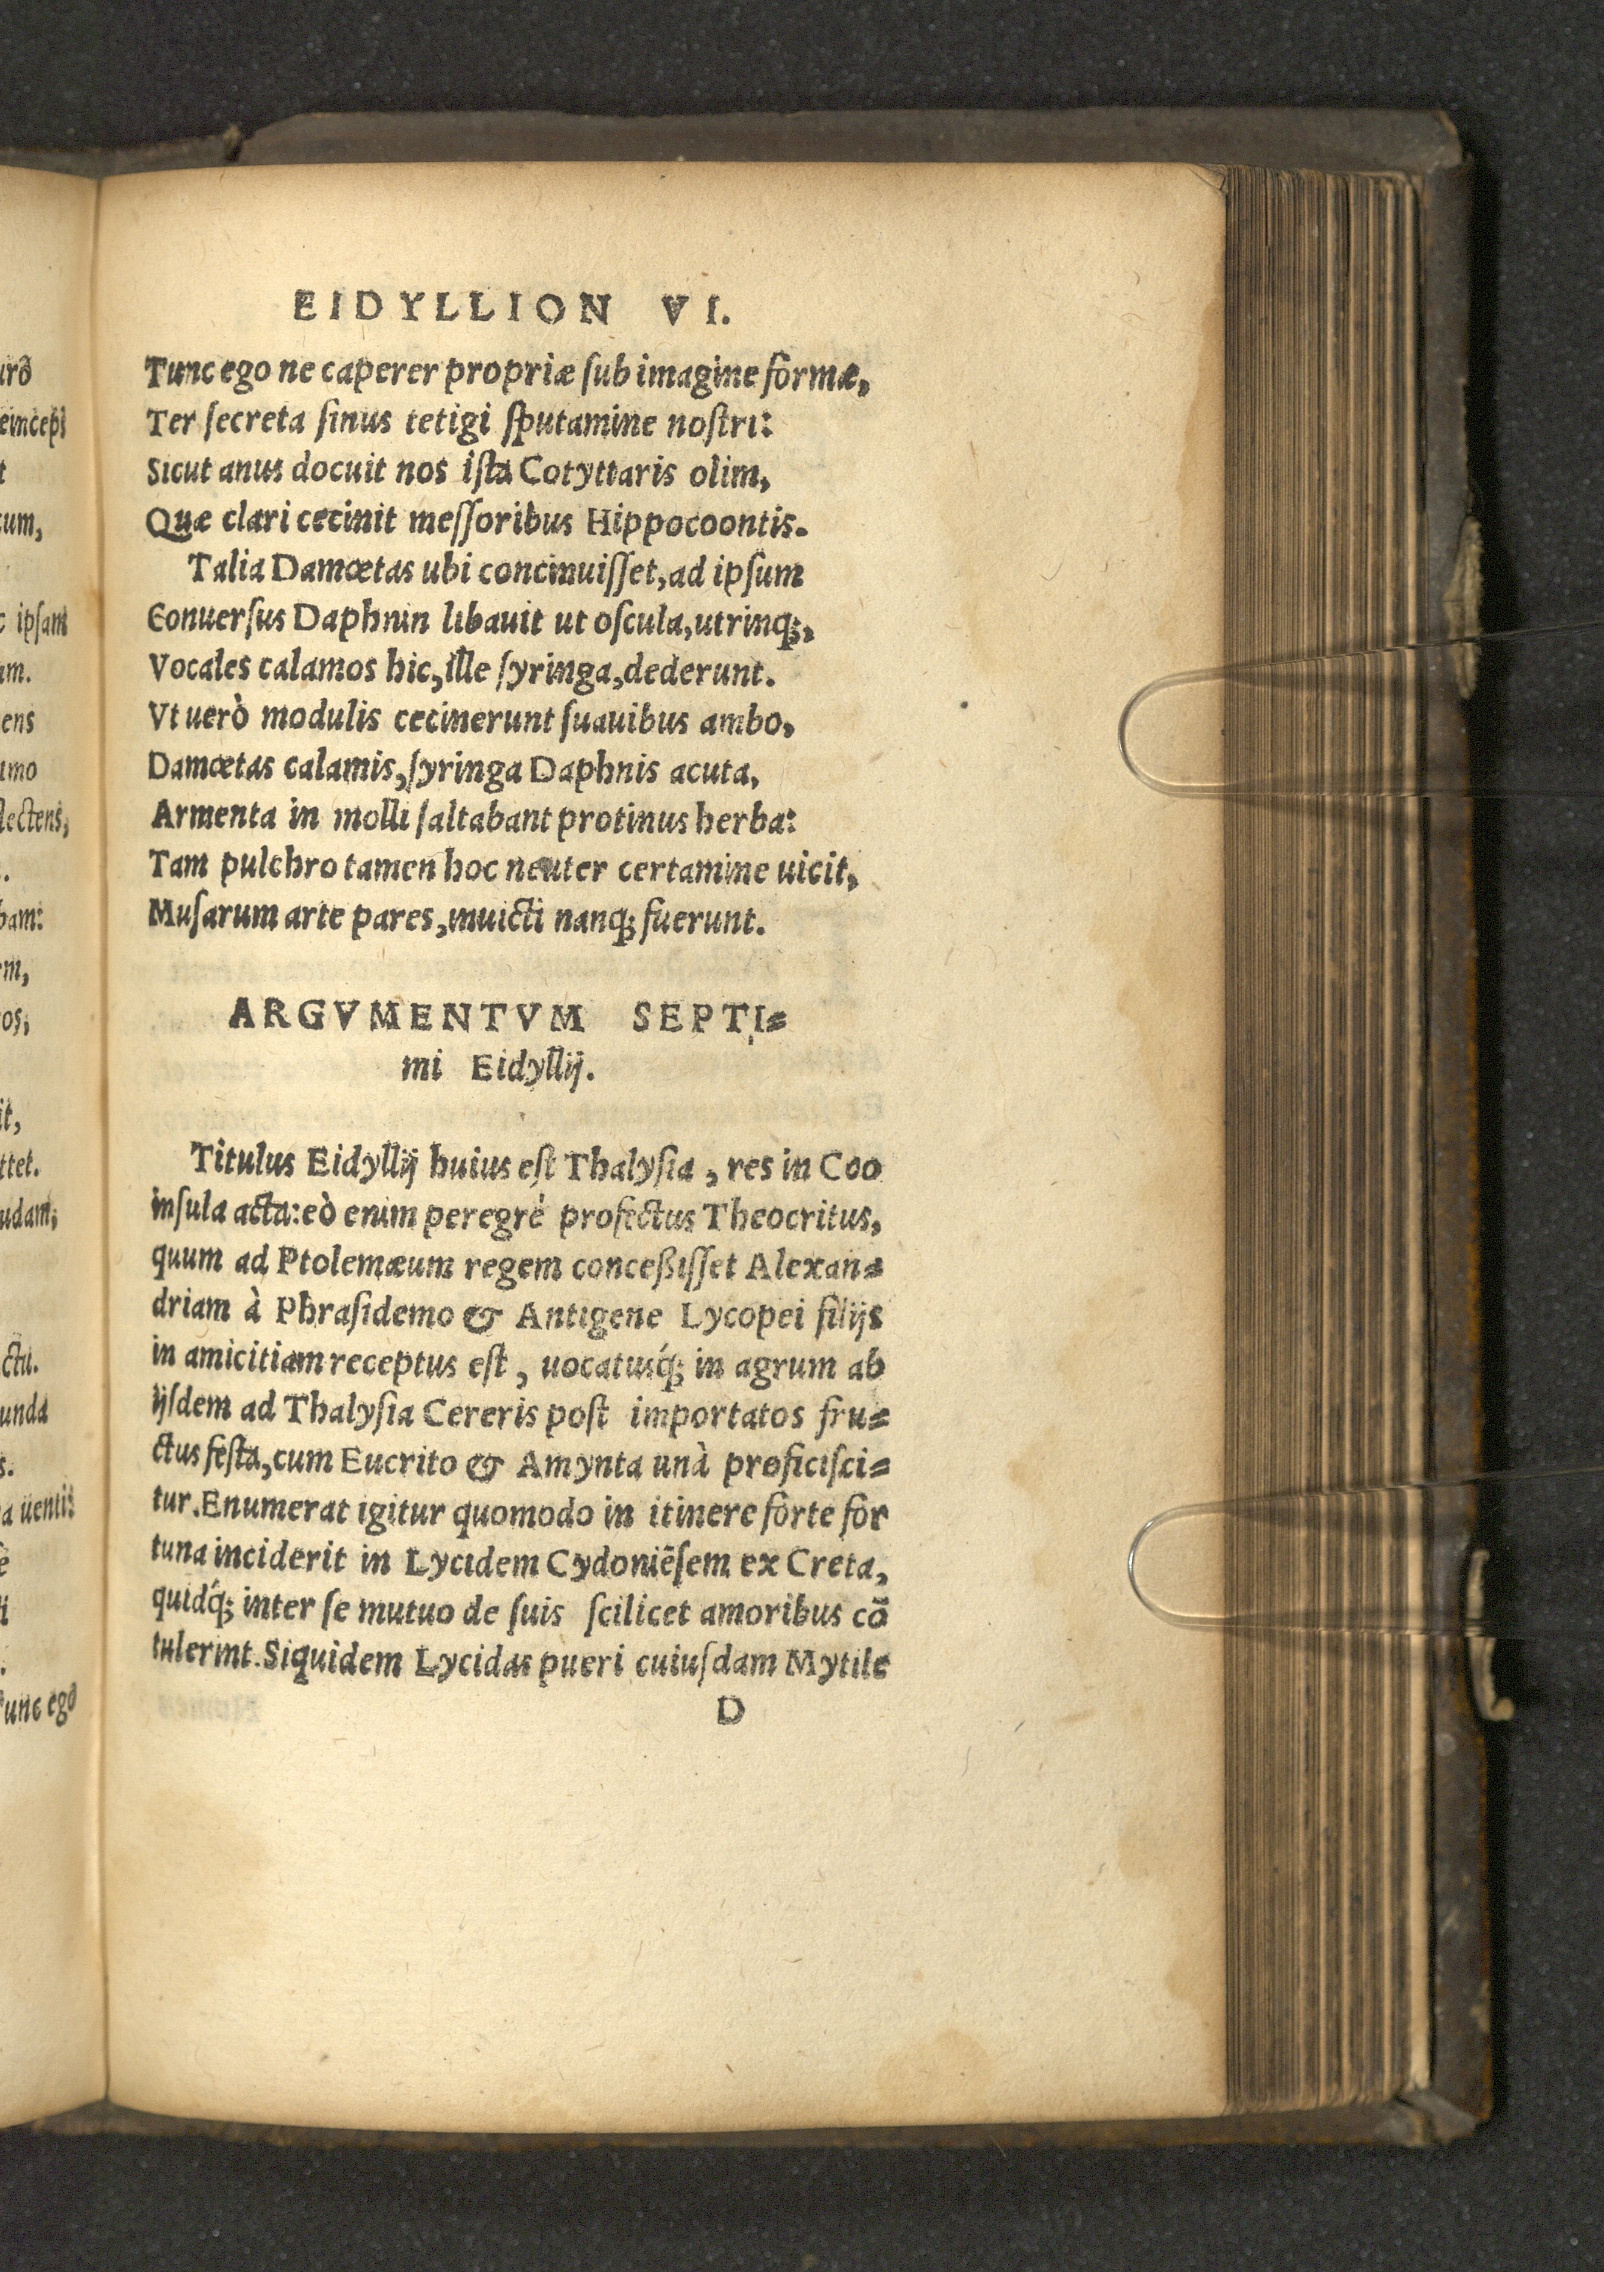 EIDYLLION VI.
Tunc ego ne caperer propriæ ſub imagine formæ,
Ter ſecreta ſinus tetigi ſputamine noſtri:
Sicut anus docuit nos iſta Cotyttaris olim,
Quæ clari cecinit meſſoribus Hippocoontis.
Talia Damœtas ubi concinuiſſet, ad ipſum
Conuerſus Daphnin libauit ut oſcula, utrinq;,
Vocales calamos hic, ille ſyringa, dederunt.
Vt uerò modulis cecinerunt ſuauibus ambo,
Damœtas calamis, ſyringa Daphnis acuta,
Armenta in molli ſaltabant protinus herba:
Tam pulchro tamen hoc neuter certamine uicit,
Muſarum arte pares, inuicti nanq; fuerunt.
ARGVMENTVM SEPTI=
mi Eidyllij.
Titulus Eidyllij huius eſt Thalyſia, res in Coo
inſula acta: eò enim peregrè profectus Theocritus,
quum ad Ptolemæum regem conceßiſſet Alexan=
driam à Phraſidemo & Antigene Lycopei filijs
in amicitiam receptus eſt, uocatusq́; in agrum ab
ijſdem ad Thalyſia Cereris poſt importatos fru=
ctus feſta, cum Eucrito & Amynta unà proficiſci=
tur. Enumerat igitur quomodo in itinere forte for
tuna inciderit in Lycidem Cydoniēſem ex Creta,
quidq́; inter ſe mutuo de ſuis ſcilicet amoribus cō
tulerint. Siquidem Lycidas pueri cuiuſdam Mytile
D